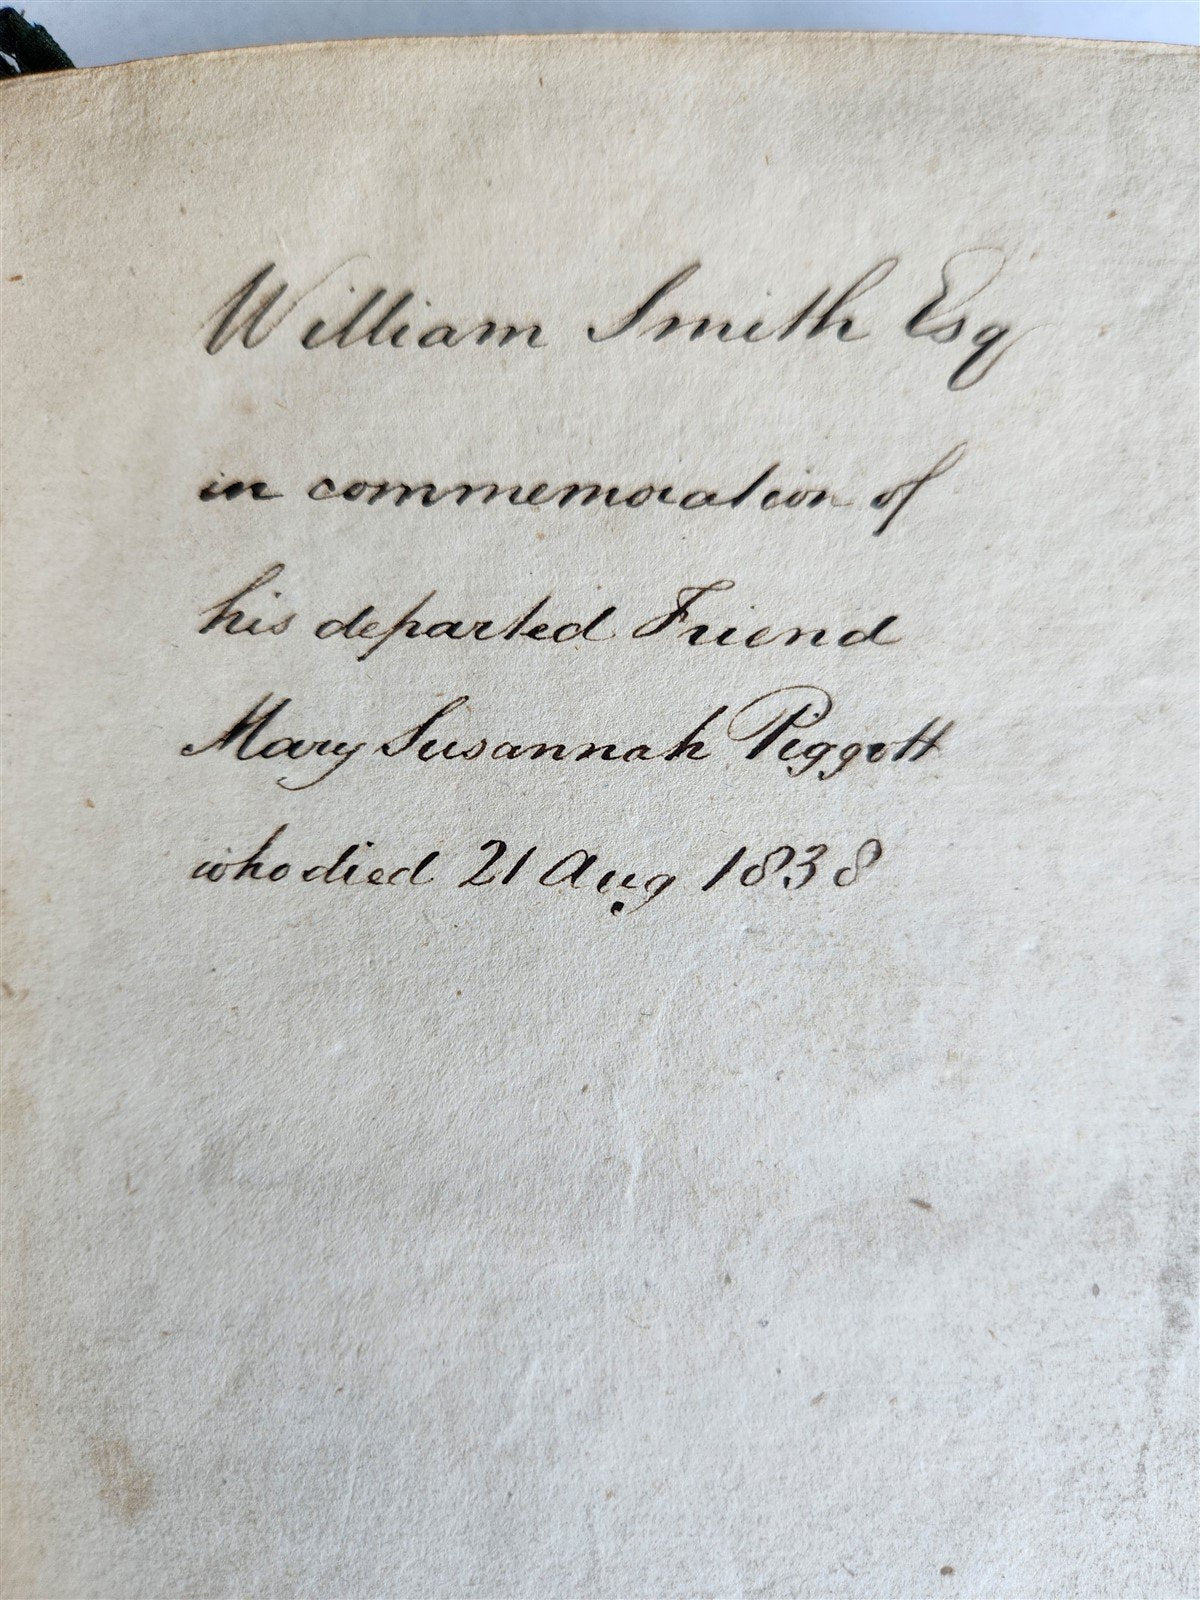 William Smith Esq
in commemoration of
his departed Friend
Mary Susannah Piggott
who died 21 Aug 1838